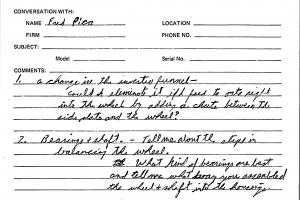 CONVERSATION WITH:
NAME Fred Pico LOCATION
FIRM PHONE NO.
SUBJECT:
Model Serial No.
COMMENTS:
1. a change in the inverter funnel -
Could I eliminate it if I feed to outs right
into the wheel by adding a chute between the
side plate and the wheel?
2. Bearings & shaft. - Tell me about the steps in
balancing the wheel.
What kind of bearings are best
and tell me what way you assembled
the wheel & shaft into the housing.